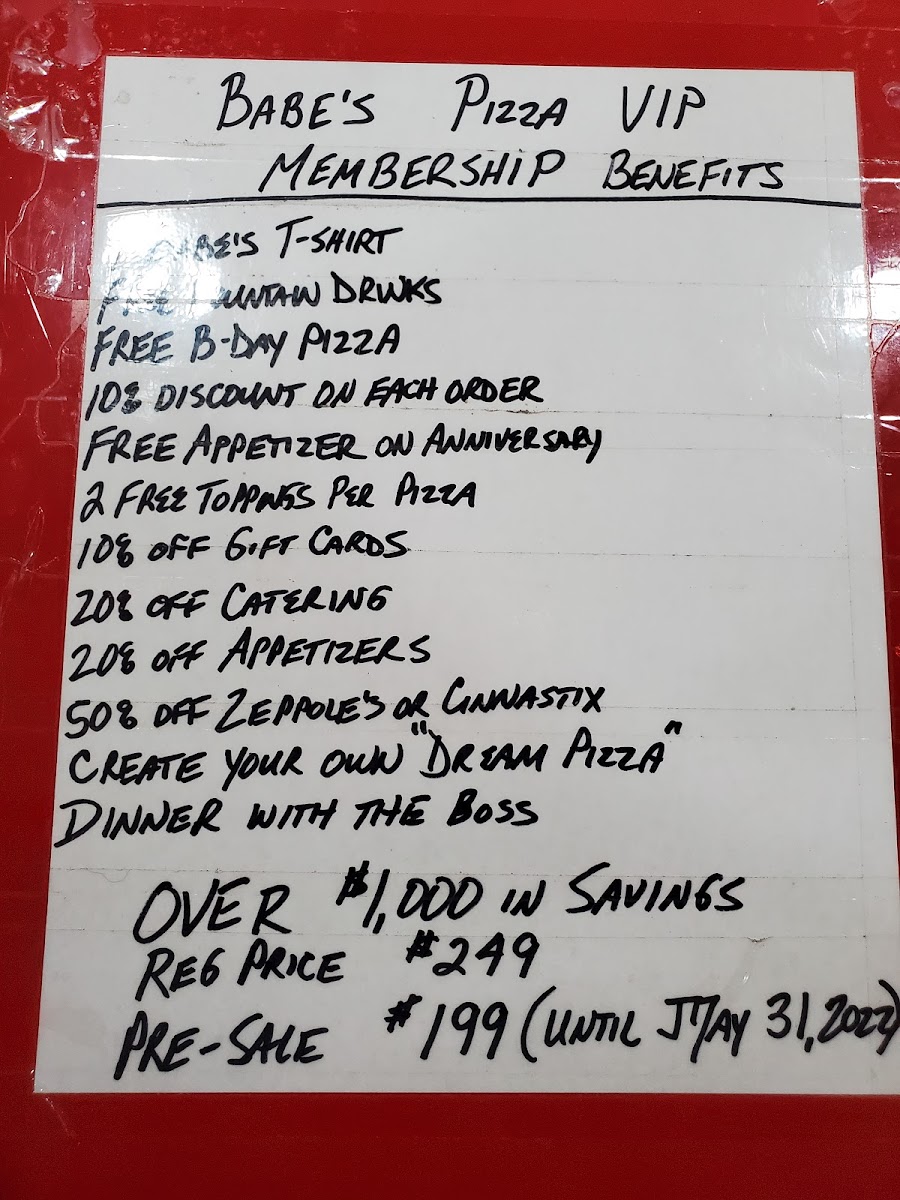 BABE'S PIZZA VIP
MEMBERSHIP BENEFITS
BABE'S T-SHIRT
FREE FOUNTAIN DRINKS
FREE B-DAY PIZZA
10% DISCOUNT ON EACH ORDER
FREE APPETIZER ON ANNIVERSARY
2 FREE TOPPINGS PER PIZZA
10% OFF GIFT CARDS
20% OFF CATERING
20% OFF APPETIZERS
50% OFF ZEPPOLE'S OR CINNASTIX
CREATE YOUR OWN "DREAM PIZZA"
DINNER WITH THE BOSS
OVER $1,000 IN SAVINGS
REG PRICE $249
PRE-SALE $199 (UNTIL MAY 31, 2022)